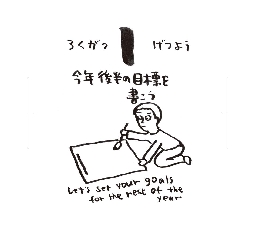 ろくがつ 1 げつよう
今年後半の目標を
書こう
Let's set your goals
for the rest of the
year